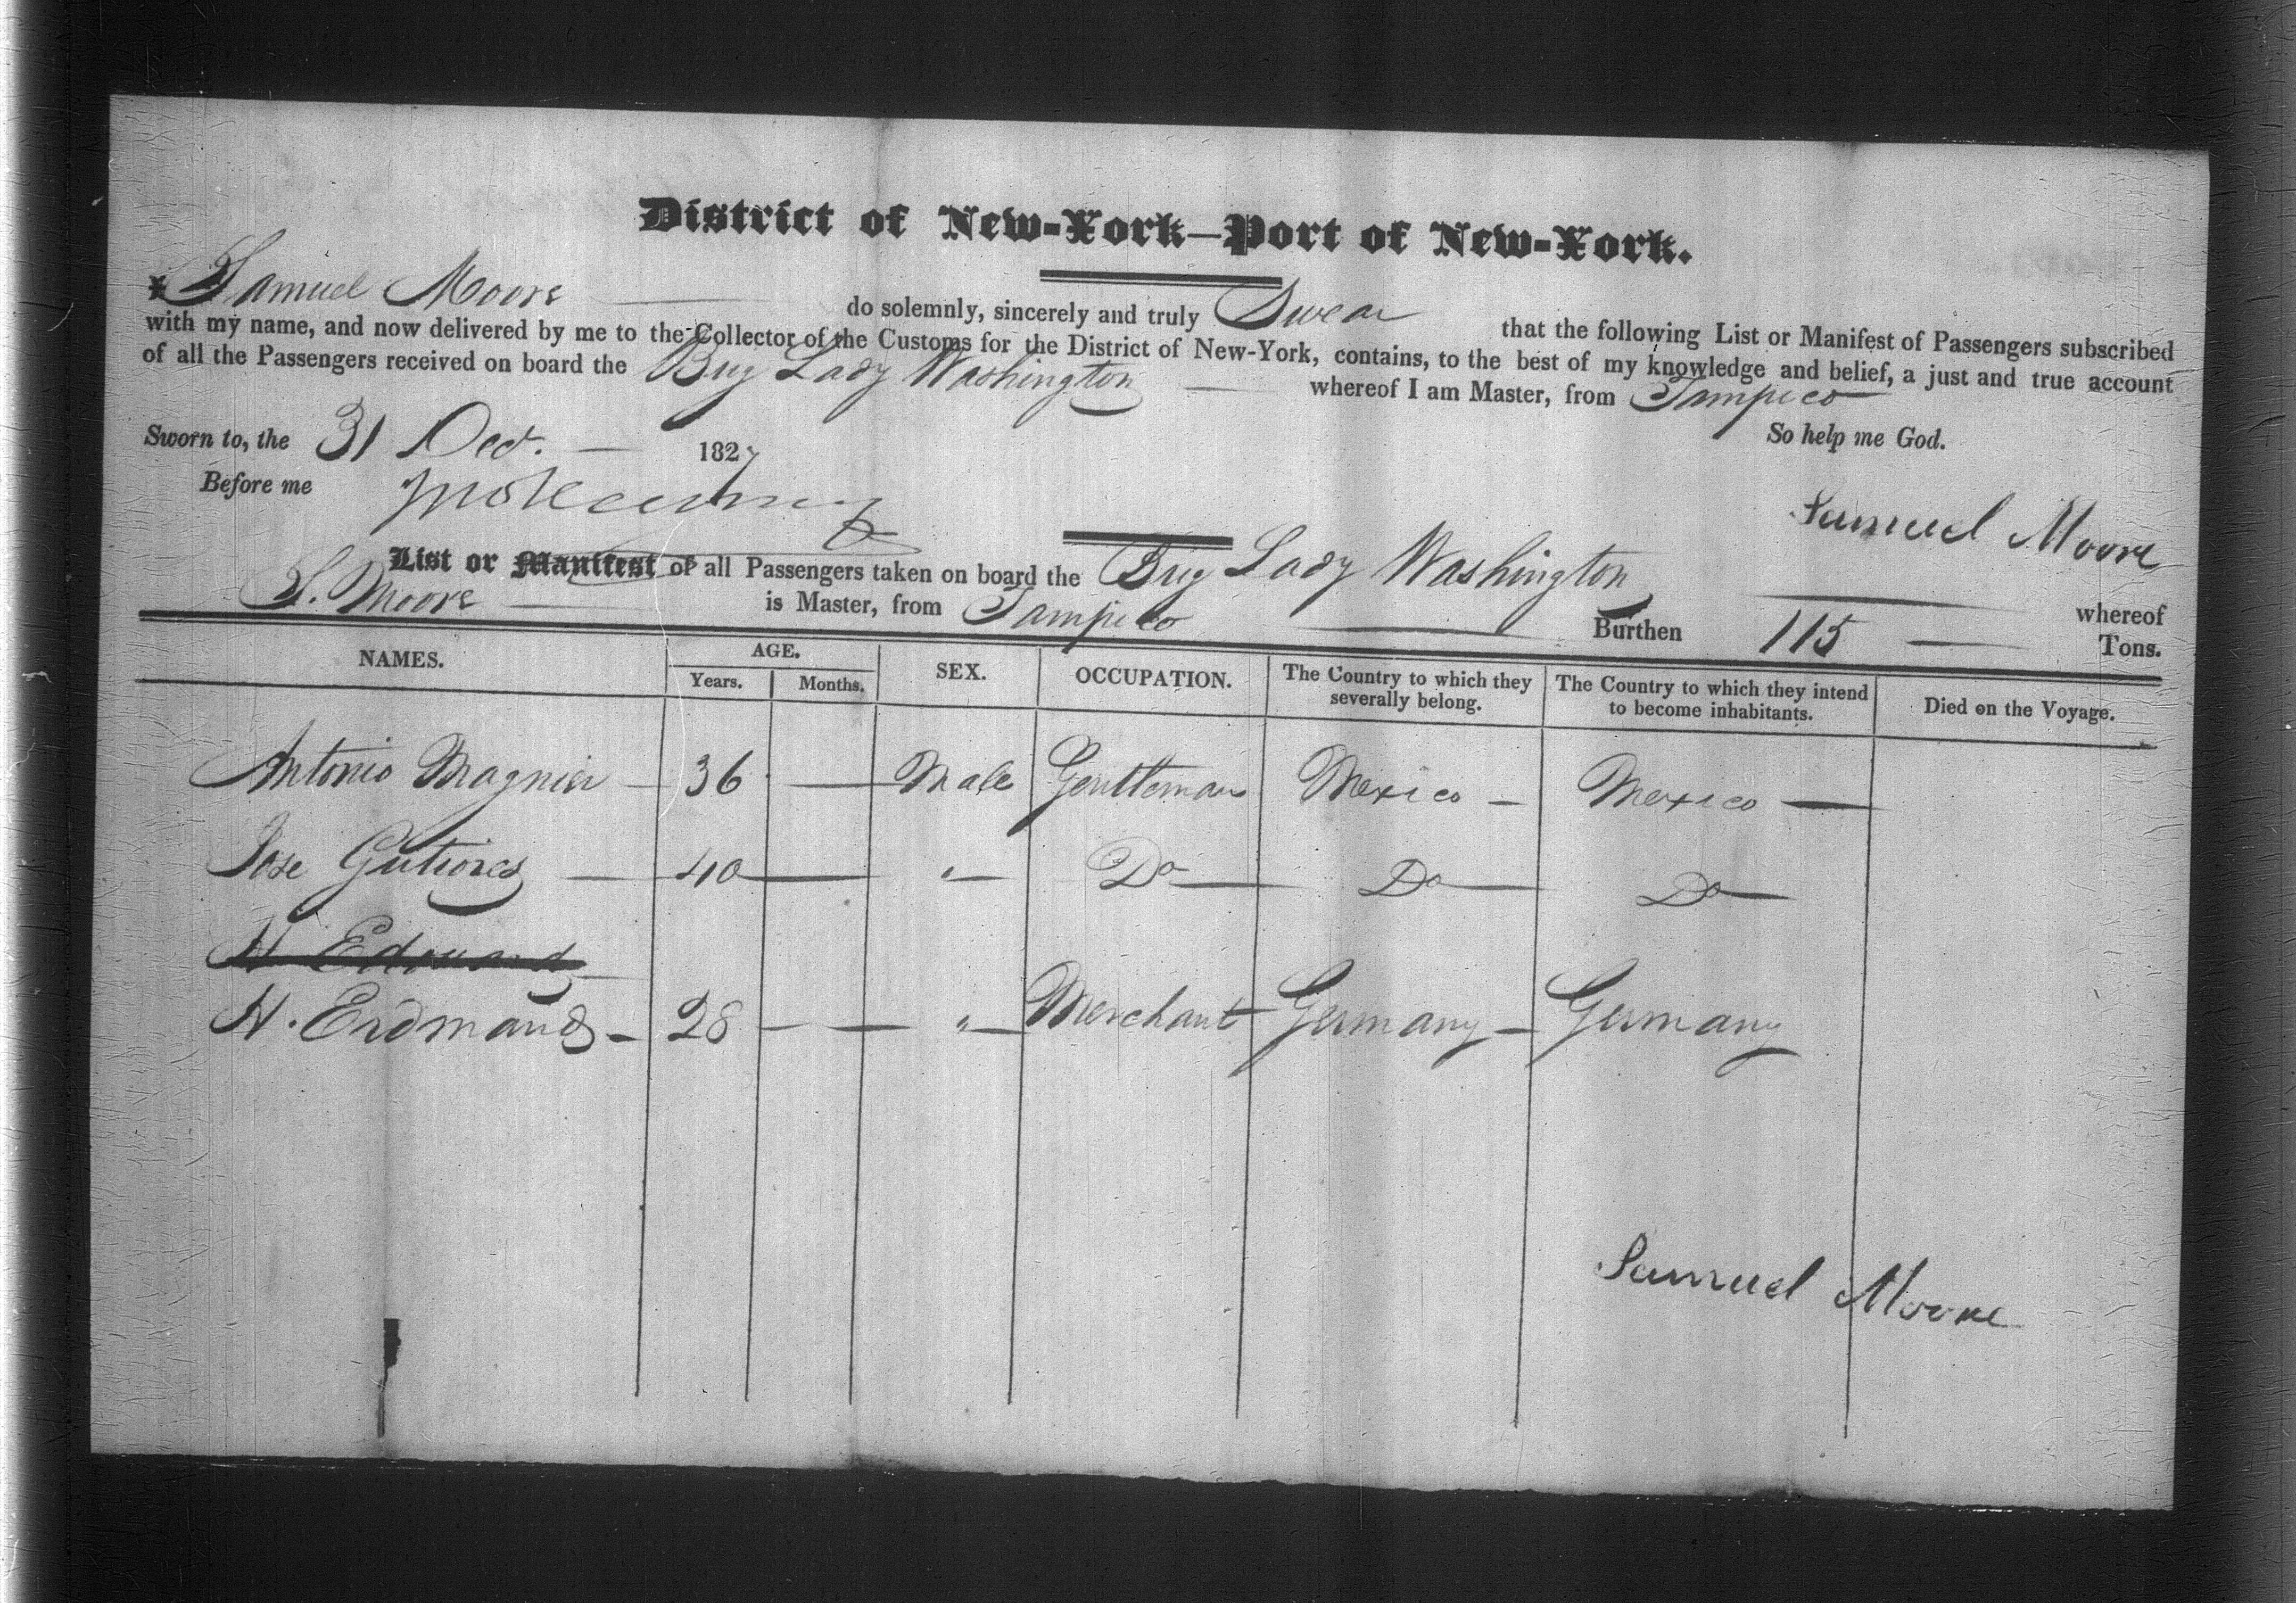 District of New-York—Port of New-York.
I Samuel Moore — do solemnly, sincerely and truly Swear that the following List or Manifest of Passengers subscribed
with my name, and now delivered by me to the Collector of the Customs for the District of New-York, contains, to the best of my knowledge and belief, a just and true account
of all the Passengers received on board the Brig Lady Washington — whereof I am Master, from Tampico
So help me God.
Sworn to, the 31 Dec. — 1827
Before me
Samuel Moore
List or Manifest of all Passengers taken on board the Brig Lady Washington — whereof
S. Moore — is Master, from Tampico — Burthen 115 — Tons.
NAMES. AGE. SEX. OCCUPATION. The Country to which they severally belong. The Country to which they intend to become inhabitants. Died on the Voyage.
Years. Months.
Antonio Magnier — 36 — Male Gentleman Mexico — Mexico —
Jose Gutiores — 40 — " — Do — Do — Do —
H Edouard
H. Erdmann — 28 — — " — Merchant Germany — Germany
Samuel Moore